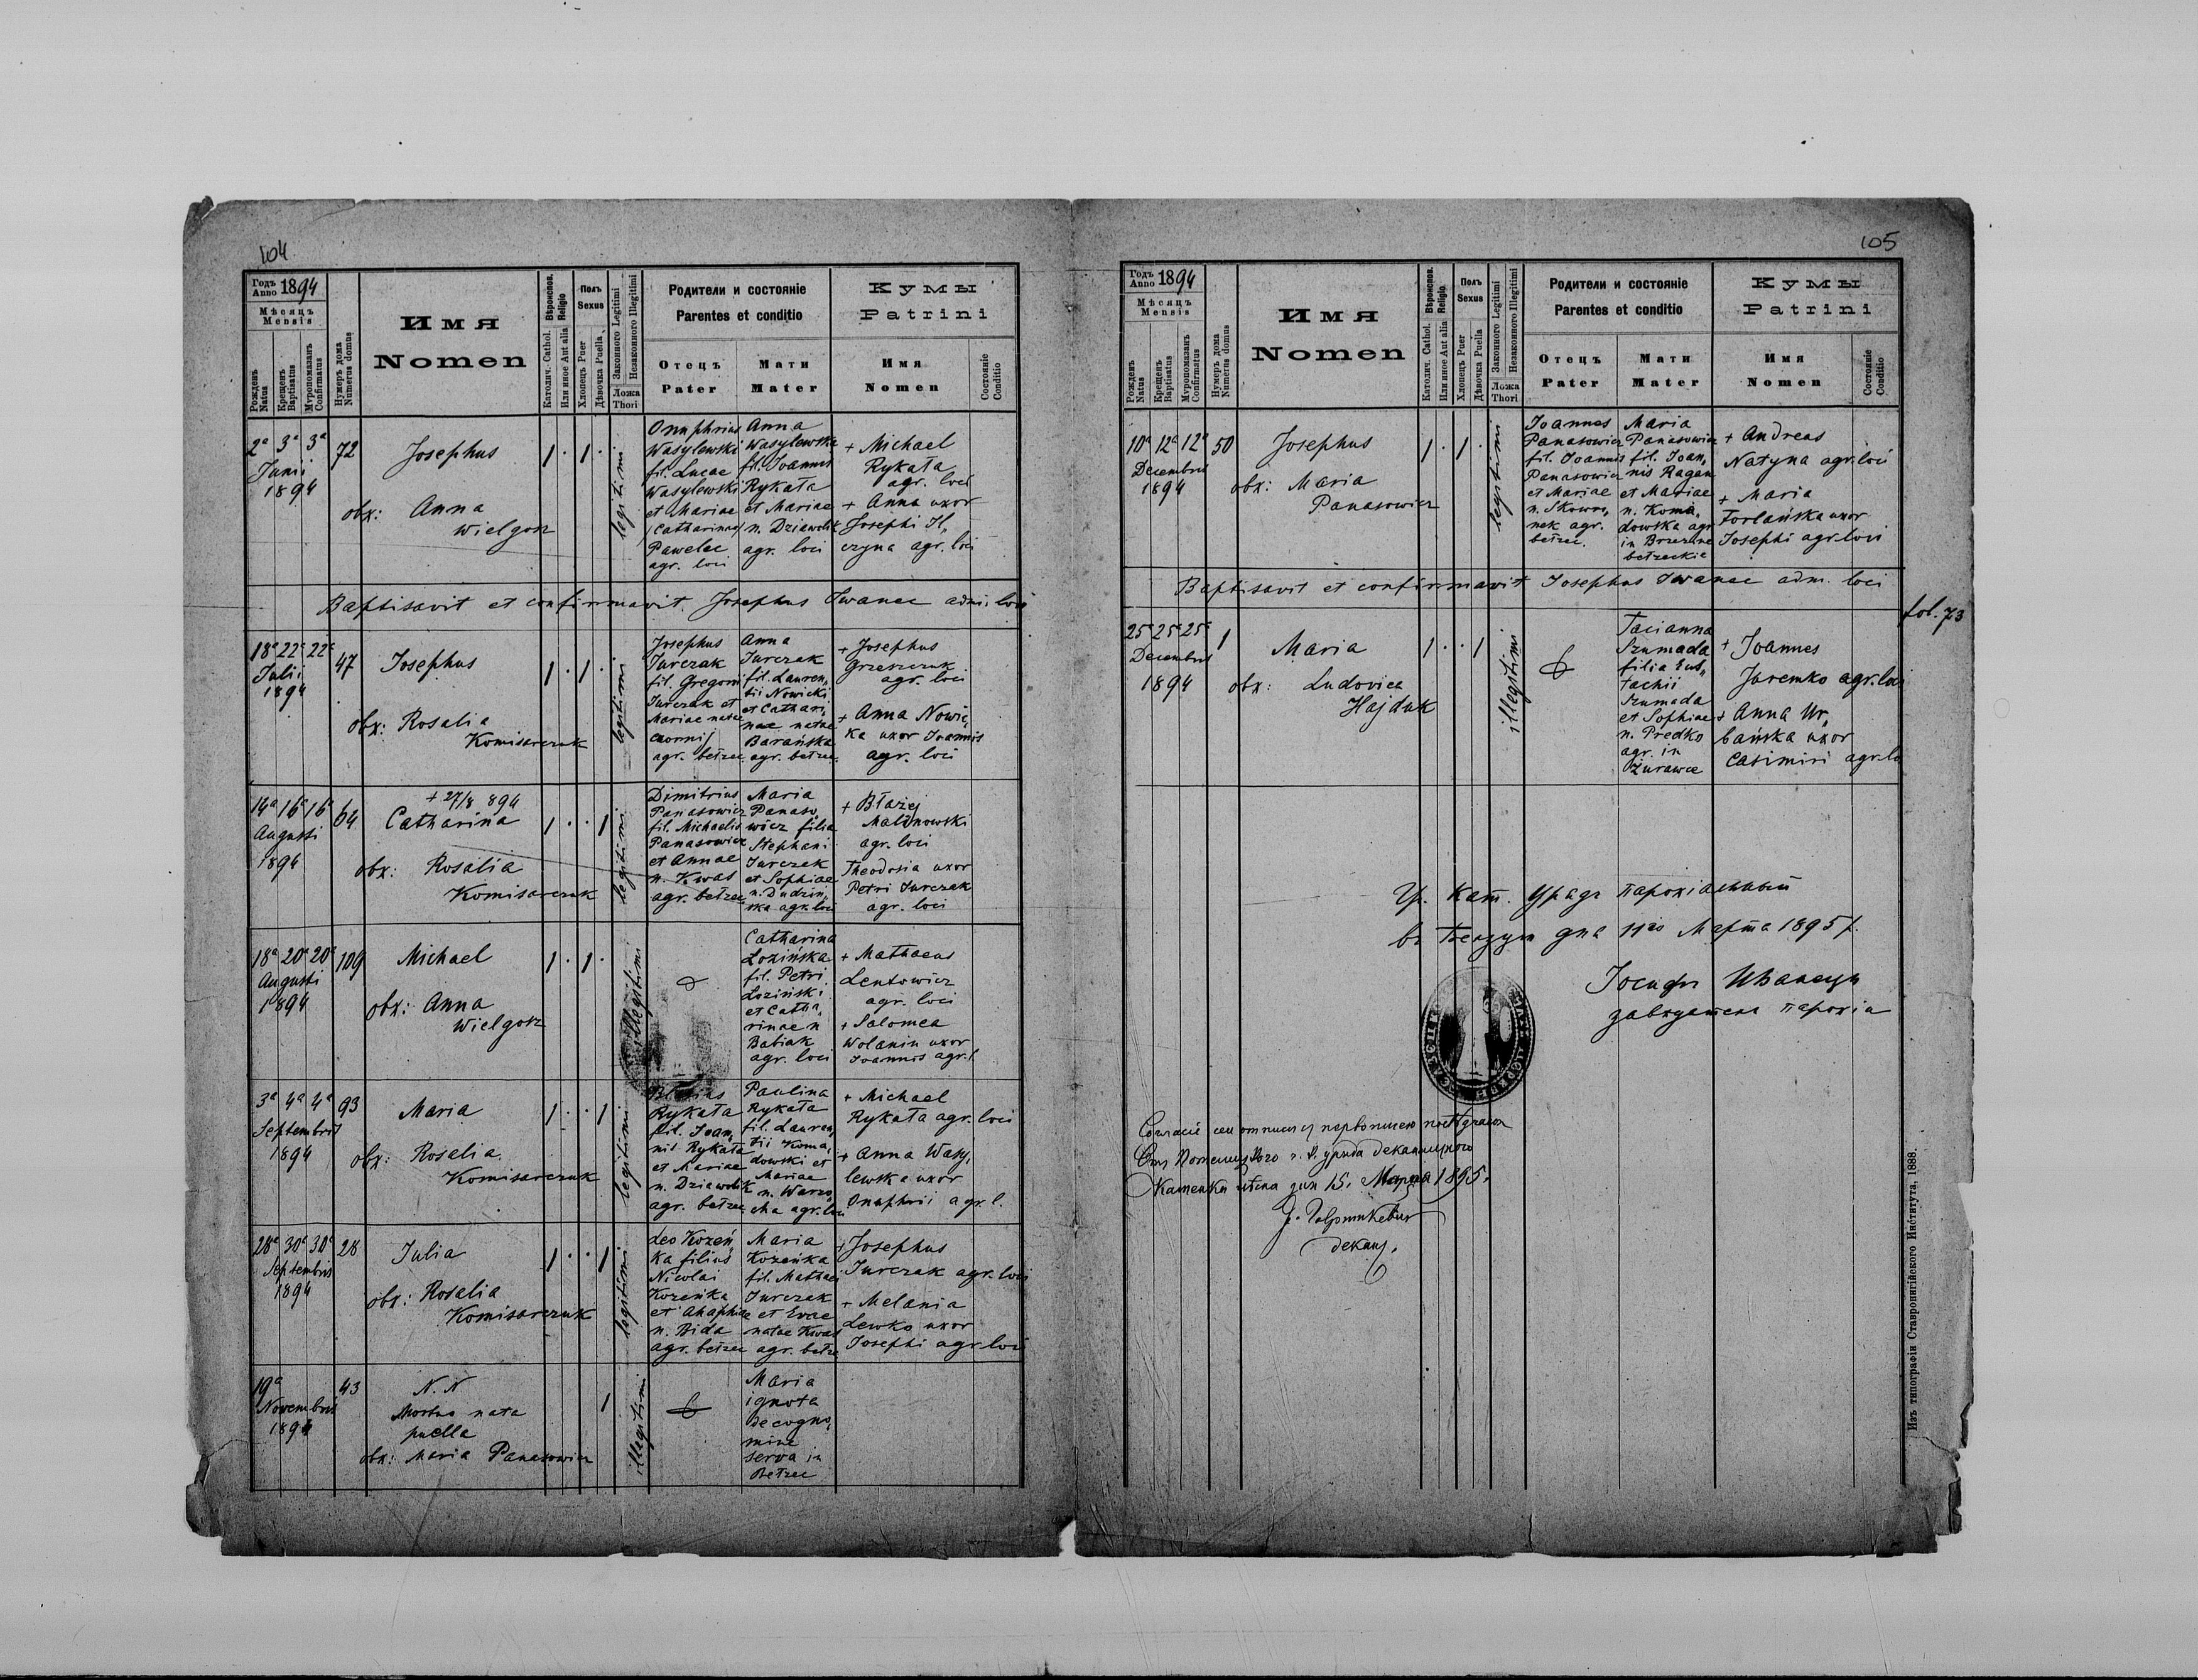 104
Годъ Anno 1894
Мѣсяцъ Mensis
Рожденъ Natus
Крещенъ Baptisatus
Мѵропомазанъ Confirmatus
Нумеръ дома Numerus domus
Имя
Nomen
Вѣроиспов. Religio
Католич. Cathol.
Или иное Aut alia
Полъ Sexus
Хлопецъ Puer
Дѣвочка Puella
Законного Legitimi
Незаконного Illegitimi
Ложа Thori
Родители и состояніе
Parentes et conditio
Отецъ Pater
Мати Mater
Кумы
Patrini
Имя Nomen
Состояніе Conditio
2ª 3ª 3ª
Junii
1894
72
Josephus
obx: Anna
Wielgosz
1 · 1 ·
legitimi
Onuphrius
Wasylewski
fil. Lucae
Wasylewski
et Mariae
(Catharinae)
Pawelec
agr. loci
Anna
Wasylewska
fil. Joannis
Rykała
et Mariae
n. Dziawolik
agr. loci
+ Michael
Rykała
agr. loci
+ Anna uxor
Josephi Il„
czyna agr. loci
Baptisavit et confirmavit Josephus Iwanec adm. loci
18ª 22ª 22ª
Julii
1894
47
Josephus
obx: Rosalia
Komisarczuk
1 · 1 ·
legitimi
Josephus
Jurczak
fil. Gregorii
Jurczak et
Mariae natae
Czornij
agr. bełzec.
Anna
Jurczak
fil. Lauren„
tii Nowicki
et Cathari„
nae natae
Barańska
agr. bełzec.
+ Josephus
Grzeszczuk
agr. loci
+ Anna Nowic„
ka uxor Joannis
agr. loci
14ª 16ª 16ª
Augusti
1894
64
+ 27/8 894
Catharina
obx: Rosalia
Komisarczuk
1 · · 1
legitimi
Dimitrius
Panasowicz
fil. Michaelis
Panasowicz
et Annae
n. Kwas
agr. bełzec
Maria
Panaso„
wicz filia
Stephani
Jurczak
et Sophiae
n. Dudziń„
ska agr. loci
+ Błażej
Malinowski
agr. loci
Theodosia uxor
Petri Jurczak
agr. loci
18ª 20ª 20ª
Augusti
1894
109
Michael
obx: Anna
Wielgosz
1 · 1 ·
illegitimi
Catharina
Łozińska
fil. Petri
Łoziński
et Catha„
rinae n
Babiak
agr. loci
+ Mathaeus
Lentowicz
agr. loci
+ Salomea
Wolanin uxor
Joannis agr. l.
3ª 4ª 4ª
Septembris
1894
93
Maria
obx: Rosalia
Komisarczuk
1 · · 1
legitimi
Rykała
fil. Joan„
nis Rykała
et Mariae
n. Dziawolik
agr. bełzec.
Paulina
Rykała
fil. Lauren„
tii Koma„
dowski et
Mariae
agr. loci
+ Michael
Rykała agr. loci
+ Anna Wasy„
lewska uxor
Onuphrii agr. l.
28ª 30ª 30ª
Septembris
1894
28
Julia
obx: Rosalia
Komisarczuk
1 · · 1
legitimi
Leo Kozeń„
ka filius
Nicolai
Kozeńka
et Ahaphiae
n. Bida
agr. bełzec
Maria
Kozeńka
fil. Mathaei
Jurczak
et Evae
natae Kwas
agr. bełzec
+ Josephus
Jurczak agr. loci
+ Melania
Lewko uxor
Josephi agr. loci
19ª
Novembris
1894
43
N. N
Mortua nata
puella
obx: Maria Panasowicz
1
illegitimi
Maria
ignota
de cogno„
mine
serva in
Bełzec
105
Годъ Anno 1894
Мѣсяцъ Mensis
Рожденъ Natus
Крещенъ Baptisatus
Мѵропомазанъ Confirmatus
Нумеръ дома Numerus domus
Имя
Nomen
Вѣроиспов. Religio
Католич. Cathol.
Или иное Aut alia
Полъ Sexus
Хлопецъ Puer
Дѣвочка Puella
Законного Legitimi
Незаконного Illegitimi
Ложа Thori
Родители и состояніе
Parentes et conditio
Отецъ Pater
Мати Mater
Кумы
Patrini
Имя Nomen
Состояніе Conditio
10ª 12ª 12ª
Decembris
1894
50
Josephus
obx: Maria
Panasowicz
1 · 1 ·
legitimi
Joannes
Panasowicz
fil. Joannis
Panasowicz
et Mariae
n. Skowro„
nek agr.
bełzec.
Maria
Panasowicz
fil. Joan„
nis Ragan
et Mariae
n. Koma„
dowska agr.
in Brzezina
bełzeckie
+ Andreas
Natyna agr. loci
+ Maria
Forlańska uxor
Josephi agr. loci
Baptisavit et confirmavit Josephus Iwanec adm. loci
25ª 25ª 25ª
Decembris
1894
1
Maria
obx: Ludovica
Hajduk
1 · · 1
illegitimi
Tacianna
Szumada
filia Eus„
tachii
Szumada
et Sophiae
n. Predko
agr. in
Żurawce
+ Joannes
Jaremko agr. loci
+ Anna Ur„
bańska uxor
Casimiri agr. lo
fol. 73
Гр. кат. Урядъ парохіальный
въ Белзци дня 11го Марта 1895 р.
Іосифъ Иванецъ
завѣдатель парохіи
дня 15. Марта 1895.
деканъ.
Изъ типографіи Ставропигійского Института, 1888.